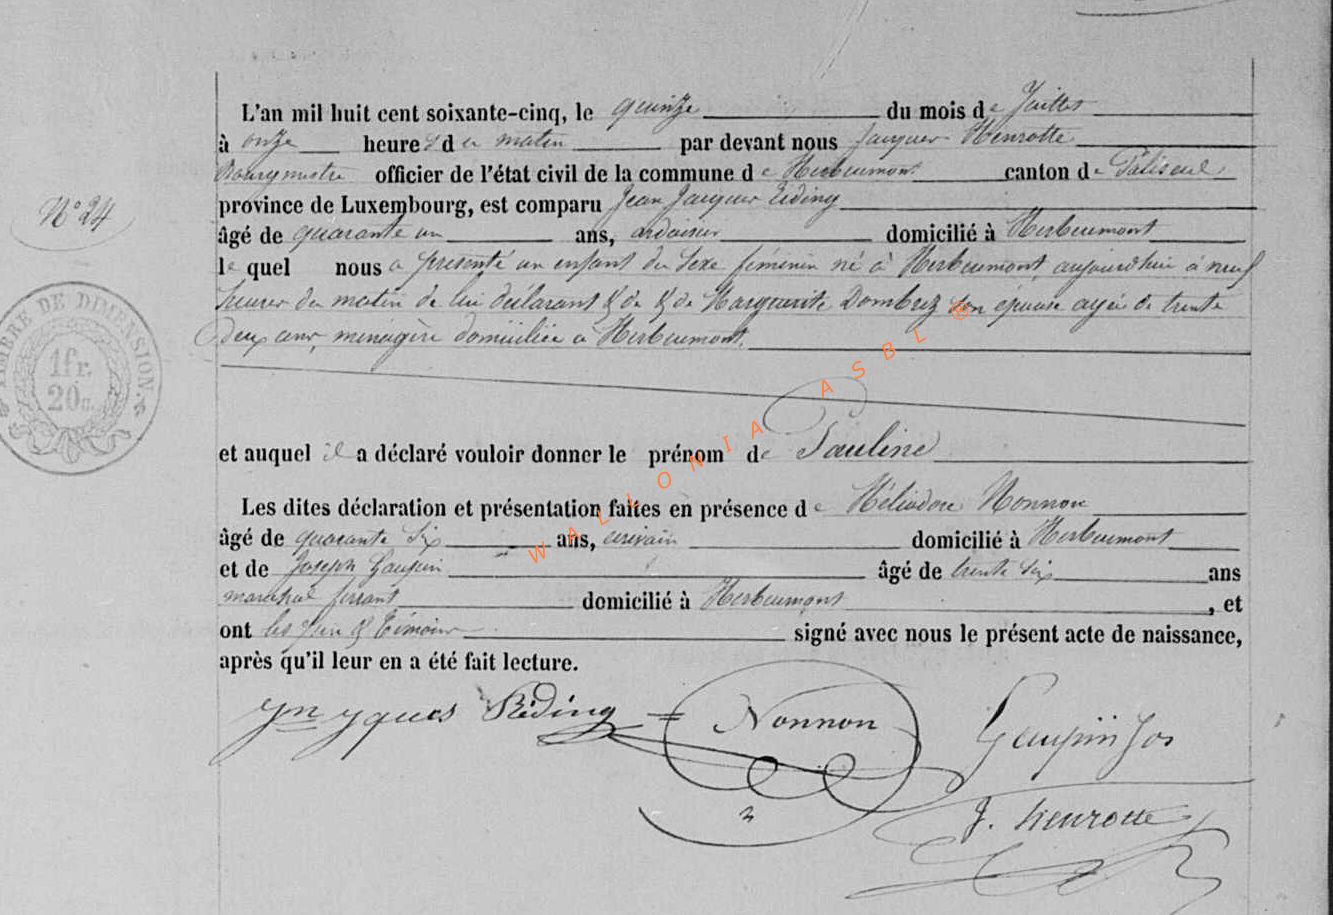 L'an mil huit cent soixante-cinq, le quinze du mois de Juillet
à onze heures du matin par devant nous Jacques Henrotte
Bourgmestre officier de l'état civil de la commune de Herbeumont canton de Paliseul
N° 24
province de Luxembourg, est comparu Jean Jacques Réding
âgé de quarante un ans, ardoisier domicilié à Herbeumont
le quel nous a présenté un enfant du sexe féminin né à Herbeumont aujourd'hui à neuf
heures du matin de lui déclarant & de & de Marguerite Dombret son épouse agée de trente
deux ans, ménagère domiciliée à Herbeumont.
TIMBRE DE DIMENSION.
1fr.
20c.
et auquel il a déclaré vouloir donner le prénom de Pauline
Les dites déclaration et présentation faites en présence de Héliodore Nonnon
âgé de quarante six ans, écrivain domicilié à Herbeumont
et de Joseph Gaupin âgé de trente six ans
maréchal ferrant domicilié à Herbeumont, et
ont les père & témoins signé avec nous le présent acte de naissance,
après qu'il leur en a été fait lecture.
Jn Jques Réding Nonnon Gaupin Jos
J. Henrotte
WALLONIA ASBL ®